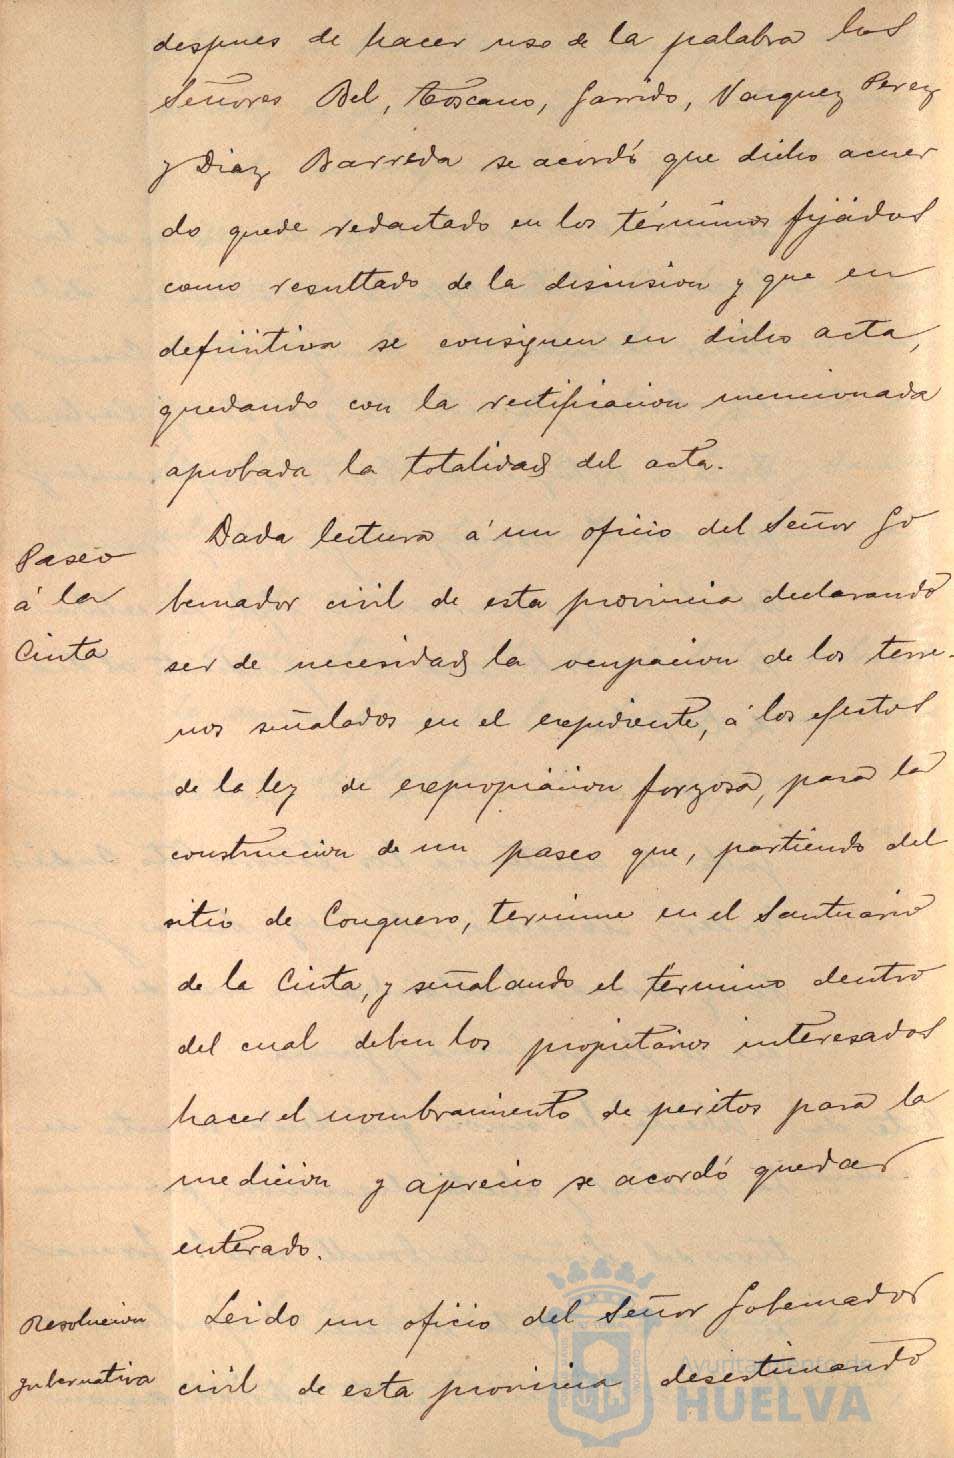 despues de hacer uso de la palabra los
Señores Bel, Toscano, Garrido, Vazquez Perez
y Diaz Barreda se acordó que dicho acuer
do quede redactado en los términos fijados
como resultado de la discusion y que en
definitiva se consignen en dicho acta,
quedando con la rectificacion mencionada
aprobada la totalidad del acta.
Paseo
á la
Cinta
Dada lectura á un oficio del Señor Go
bernador civil de esta provincia declarando
ser de necesidad la ocupacion de los terre-
nos señalados en el expediente, á los efectos
de la ley de expropiacion forzosa, para la
construccion de un paseo que, partiendo del
sitio de Conquero, termine en el Santuario
de la Cinta, y señalando el término dentro
del cual deben los propietarios interesados
hacer el nombramiento de peritos para la
medicion y aprecio se acordó quedar
enterado.
Resolucion
gubernativa
Leido un oficio del Señor Gobernador
civil de esta provincia desestimando
Ayuntamiento de
HUELVA